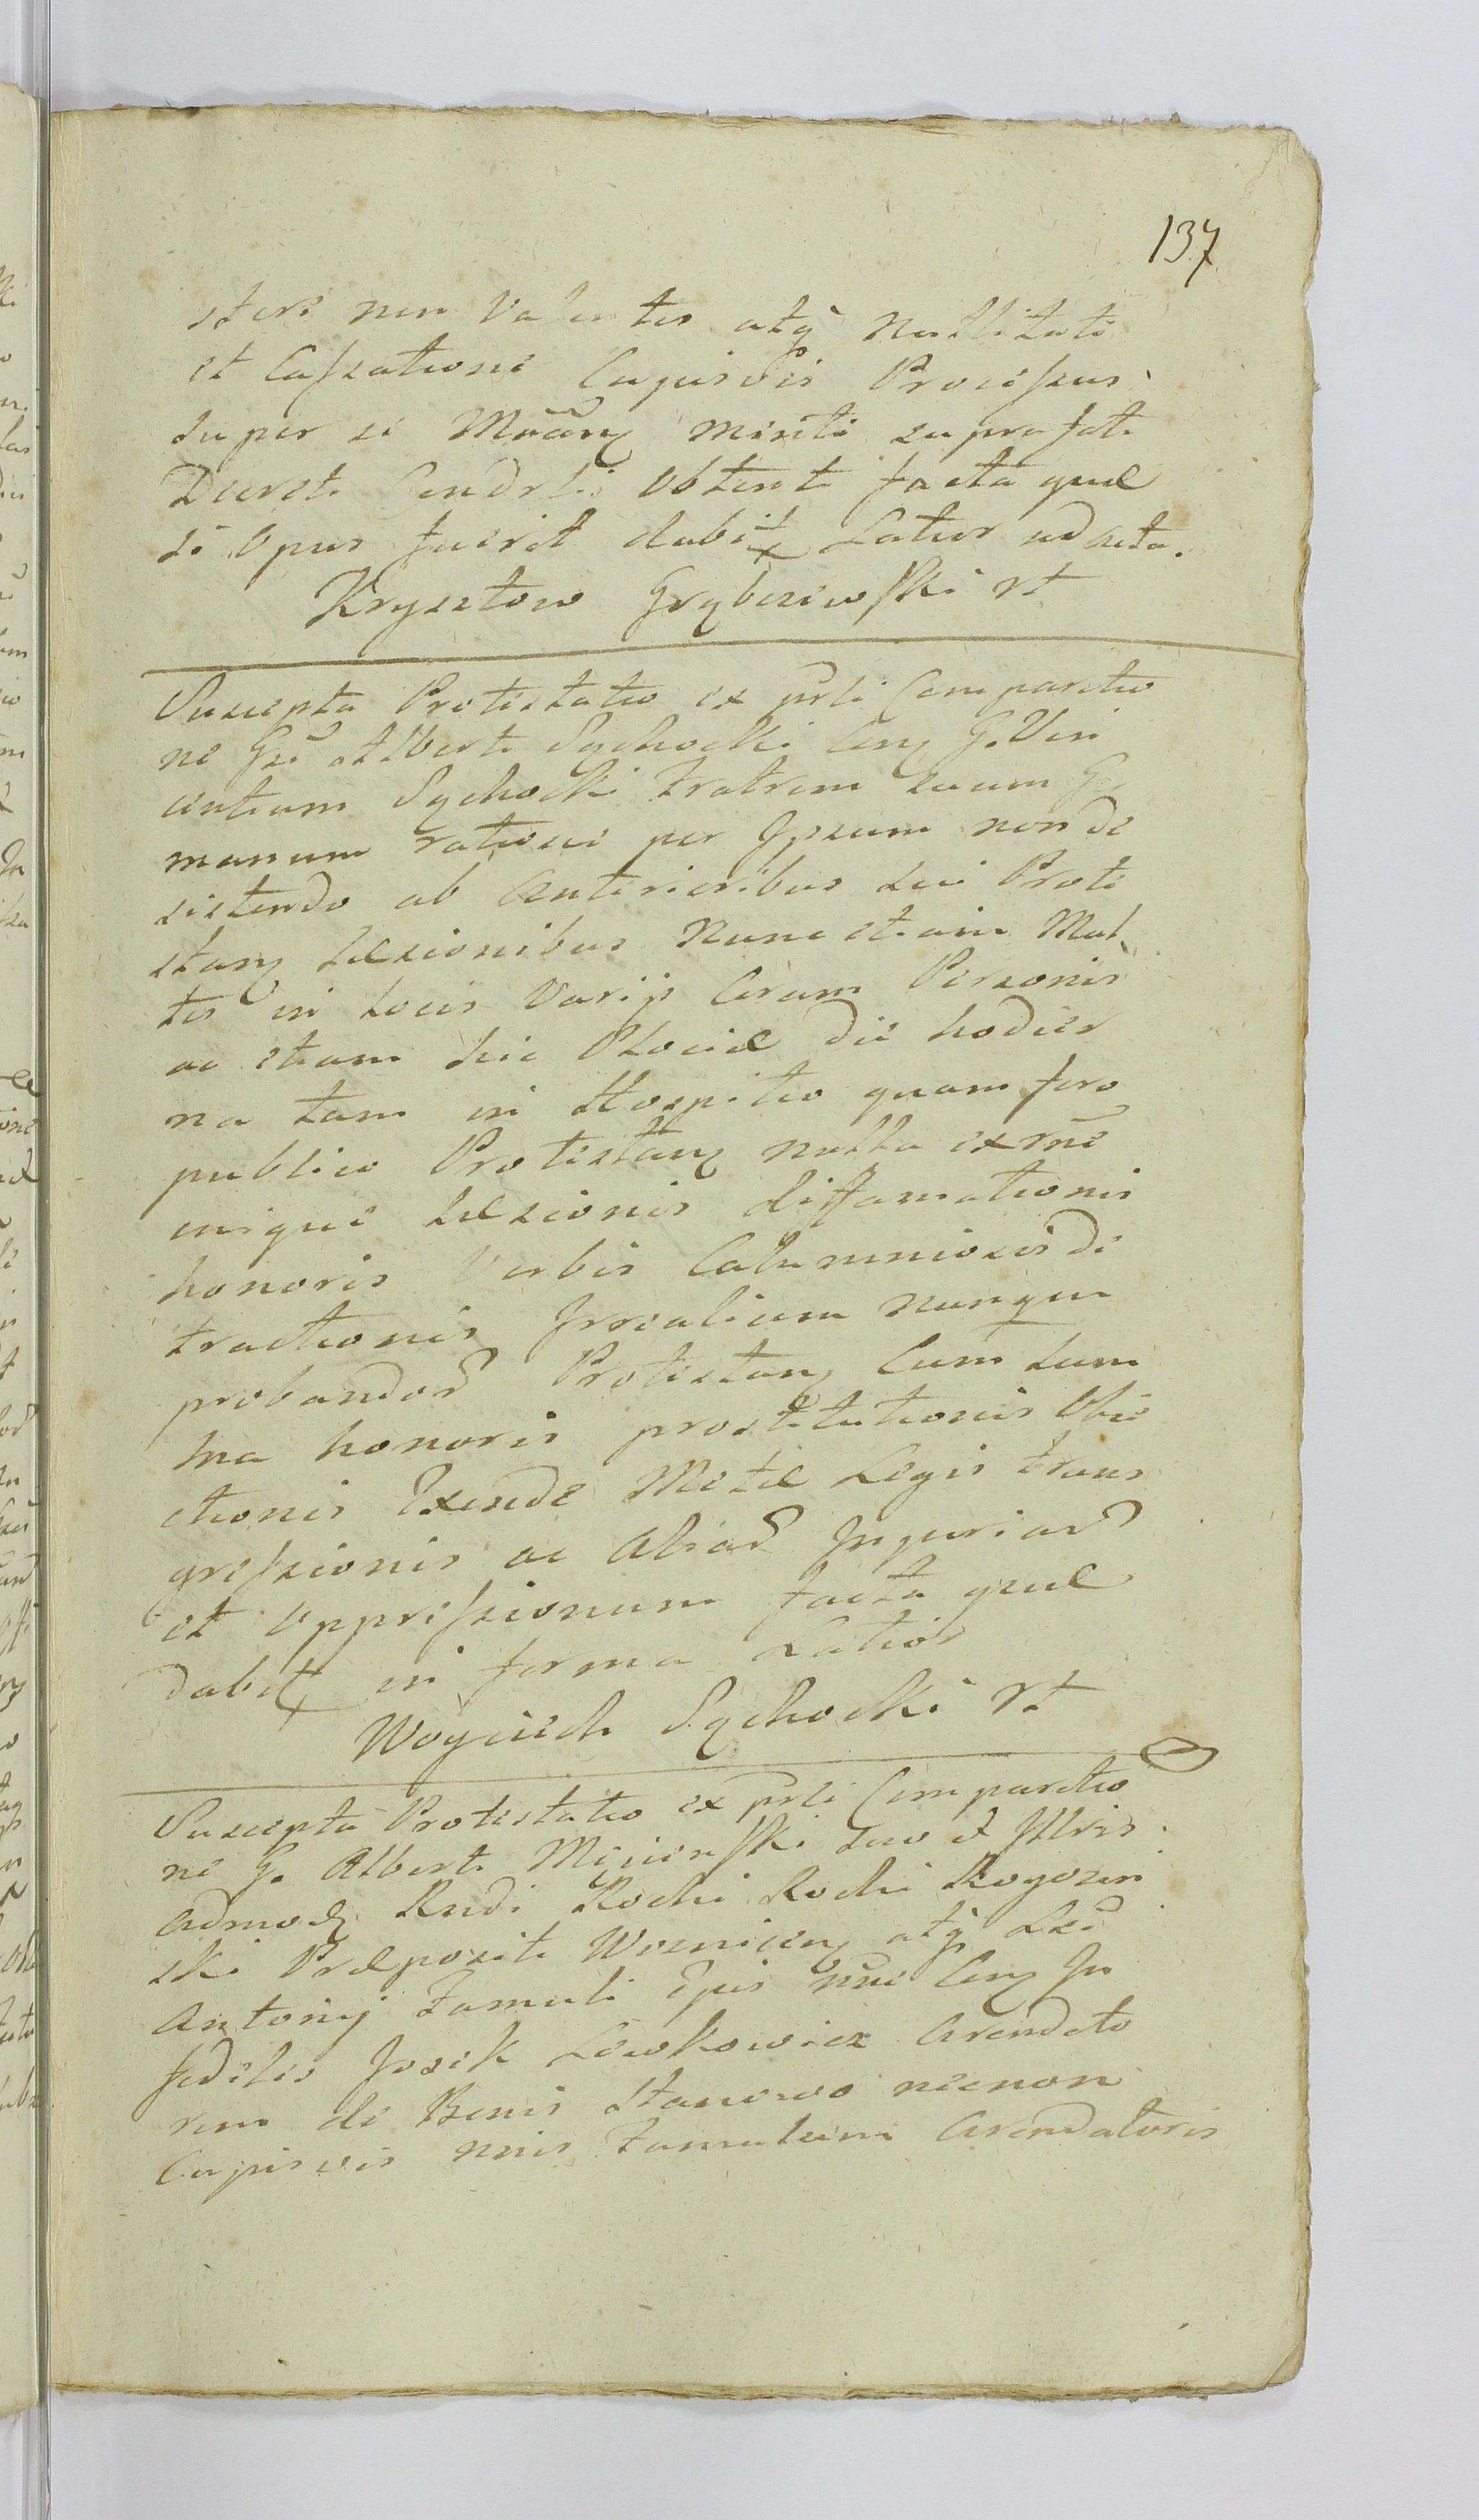 137
steri non Valentis atq nullitate
et Cassatione Cujusvis Processus
super se Mvãnz minti supra fati
Decreti Condrlis obtenti facta quae
si opus fuerit dabitr Latior ad acta.
Krysztow Grzybczewski rt
Suscepta Protestatio ex prsti Comparitio
ne Gsi Alberti Sychocki Cenz G. Vin
centium Sychocki Fratrem suum Ger
manum ratione per Ipsum non de
sistendo ab Anterioribus Sui Prote
stanz Laesionibus Nunc etiam Mul
tis in Locis Varijs Coram Personis
ac etiam hic Plociae die hodier
na tam in Hospitio quam foro
publico Protestanz nulla ex rñe
inique Laesionis diffamationis
honoris Verbis Calumniosis de
tractionis Irrealium nunqua
probandor Protestanz Cum Sum
ma honoris prostitutionis Obie
ctionis Exinde Metae Legis trans
gressionis ac Aliar Injuriar
et oppressionum facta quae
dabitr in forma Latior
Woyciech Sychocki rt
Suscepta Protestatio ex prsti Comparitio
ne G. Alberti Micierski suo et Illris
admodz Rndi Rochi Rochi Rogozin
ski Praepositi Woznicenz atq Lsi
Antonij Famuli Ejus nnê Cenz In
fidelis Josek Lewkowicz Arendato
rem de Bonis Stanowo necnon
Cujusvis nnis Famulum Arendatoris